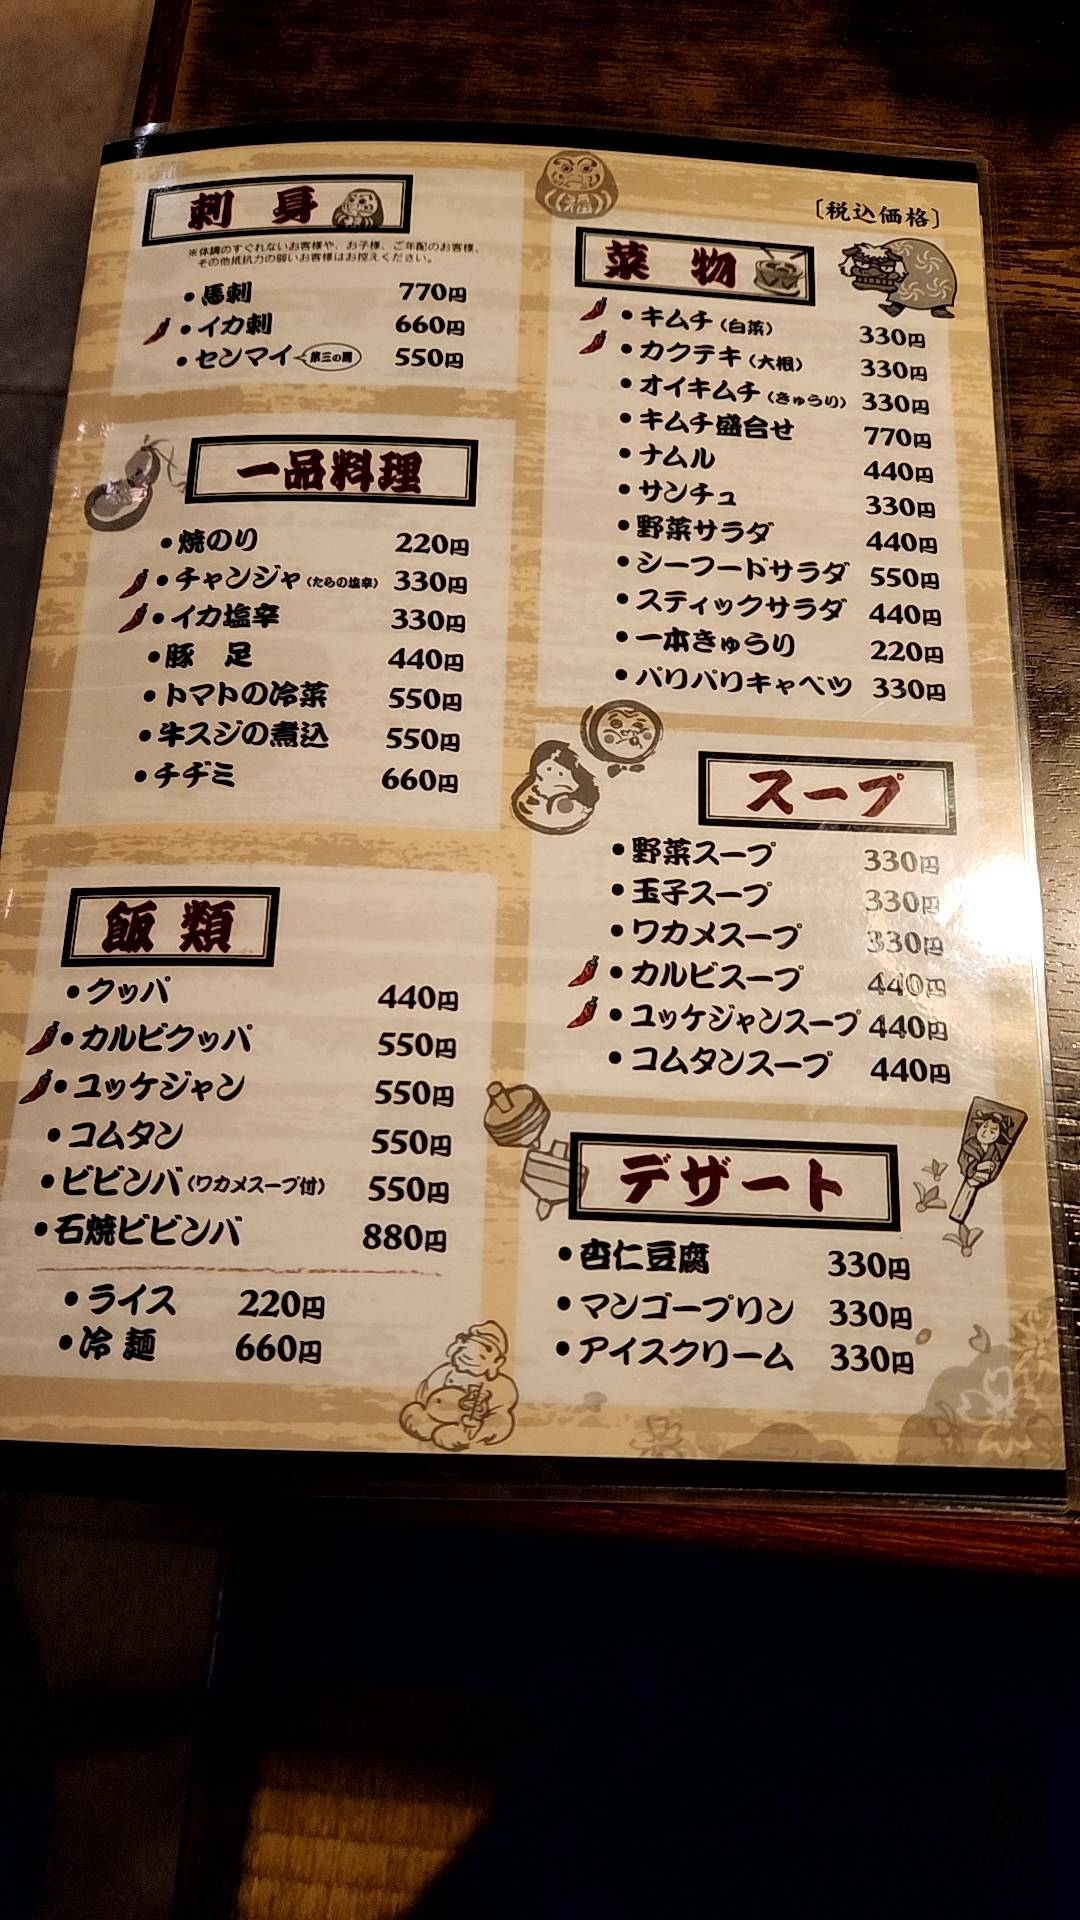 刺身
※体調のすぐれないお客様や、お子様、ご年配のお客様、
その他抵抗力の弱いお客様はお控えください。
•馬刺 770円
•イカ刺 660円
•センマイ 第三の胃 550円
一品料理
•焼のり 220円
•チャンジャ(たらの塩辛) 330円
•イカ塩辛 330円
•豚 足 440円
•トマトの冷菜 550円
•牛スジの煮込 550円
•チヂミ 660円
飯類
•クッパ 440円
•カルビクッパ 550円
•ユッケジャン 550円
•コムタン 550円
•ビビンバ(ワカメスープ付) 550円
•石焼ビビンバ 880円
•ライス 220円
•冷 麺 660円
福
〔税込価格〕
菜物
•キムチ(白菜) 330円
•カクテキ(大根) 330円
•オイキムチ(きゅうり) 330円
•キムチ盛合せ 770円
•ナムル 440円
•サンチュ 330円
•野菜サラダ 440円
•シーフードサラダ 550円
•スティックサラダ 440円
•一本きゅうり 220円
•パリパリキャベツ 330円
スープ
•野菜スープ 330円
•玉子スープ 330円
•ワカメスープ 330円
•カルビスープ 440円
•ユッケジャンスープ 440円
•コムタンスープ 440円
デザート
•杏仁豆腐 330円
•マンゴープリン 330円
•アイスクリーム 330円